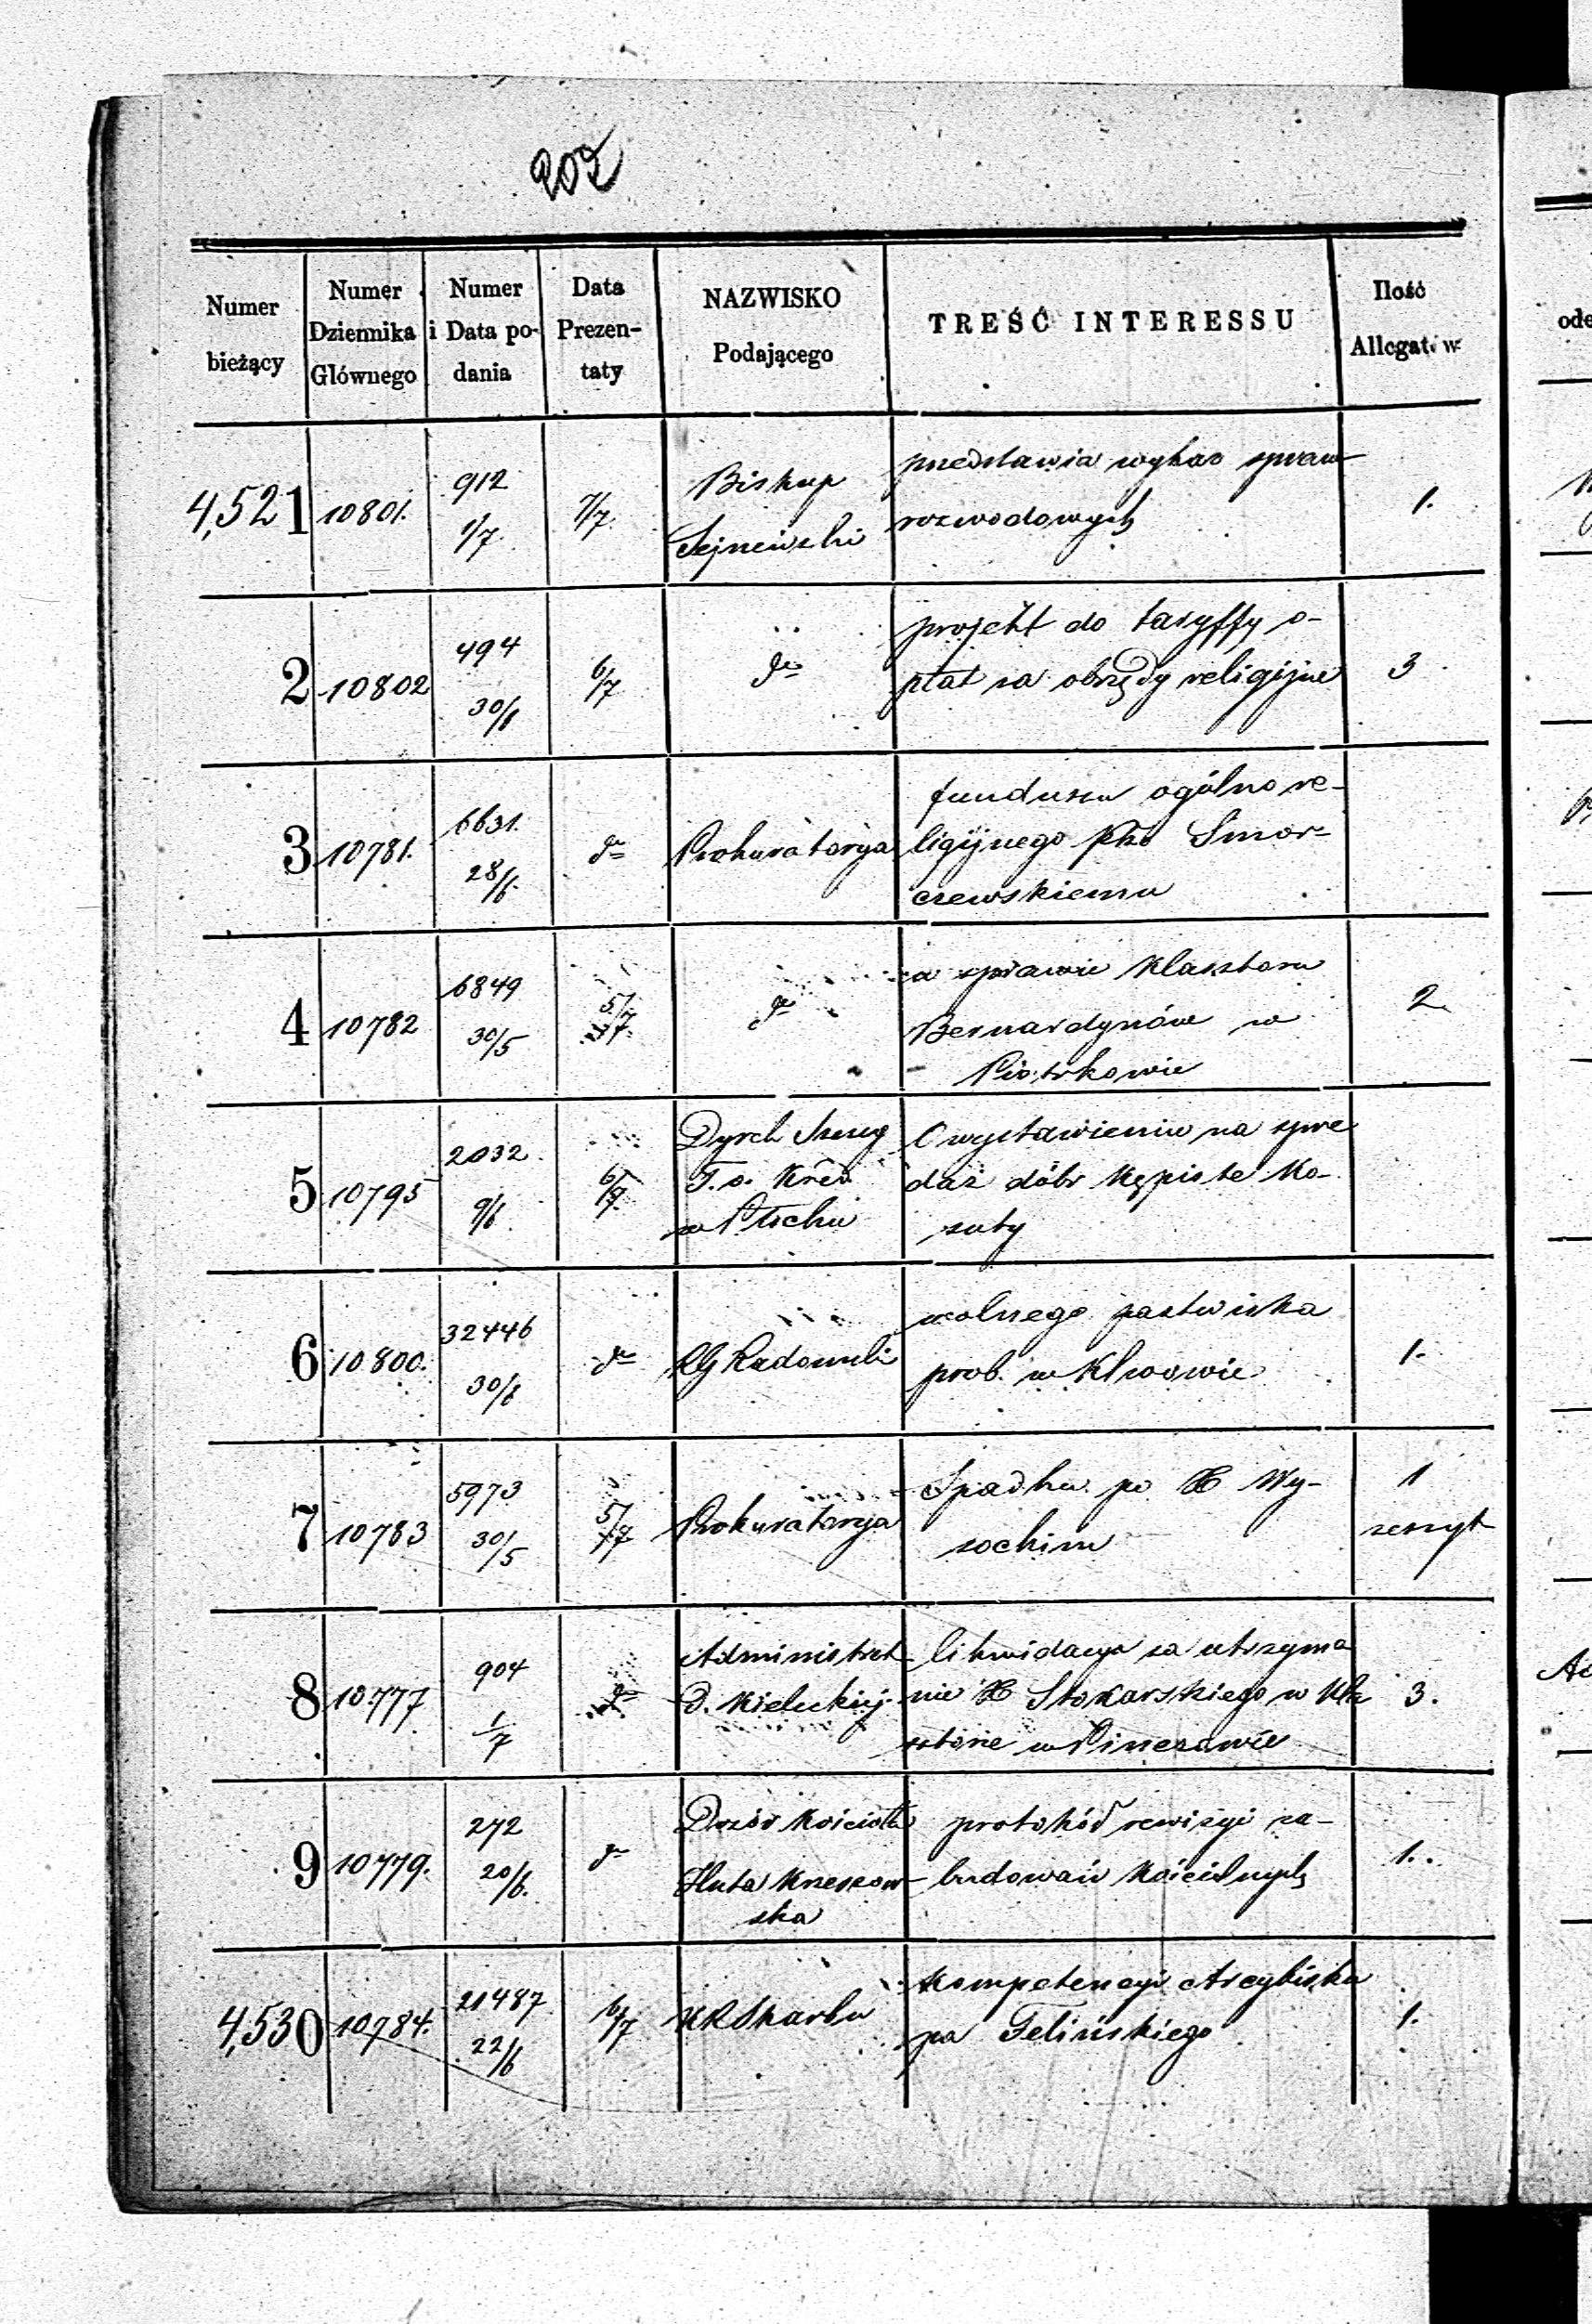 202
Numer bieżący
Numer Dziennika Głównego
Numer i Data podania
Data Prezentaty
NAZWISKO Podającego
TREŚĆ INTERESSU
Ilość Allegatów
4,521 10801. 912 1/7 7/7. Biskup Sejneński
przedstawia wykaz spraw
rozwodowych
1.
2 10802 494 30/6 6/7 do
projekt do taryffy o-
płat za obrzędy religijne
3
3 10781. 6631. 28/6. do Prokuratorya
funduszu ogólno re-
ligijnego pko Smor-
czewskiemu
4 10782 6849 30/5 5/7 do
w sprawie Klasztoru
Bernardynów w
Piotrkowie
2
5 10795 2032 9/6 6/7
Dyrek Szczeg
T. o. Kred
w Płocku
O wystawieniu na sprze
daż dóbr Kępiste Ko-
suty
6 10800. 32446 30/6 do RG Radomski
wolnego pastwiska
prob. w Klwowie
1.
7 10783 5973 30/5 5/7 Prokuratorya
Spadku po X Wy-
sockim
1
zeszyt
8 10777 904 1/7 do
Administrat
D. Kieleckiej
likwidacya za utrzyma
nie X Stokarskiego w Kla
sztorze w Pinczowie
3.
9 10779. 272 20/6. do
Dozór Kościoła
Huta Krzeszow-
ska
protokół rewizyi za-
budowań Kościelnych
1.
4,530 10784. 21487 22/6 6/7 KRSkarbu
Kompetencyi Arcybisku
pa Felińskiego
1.